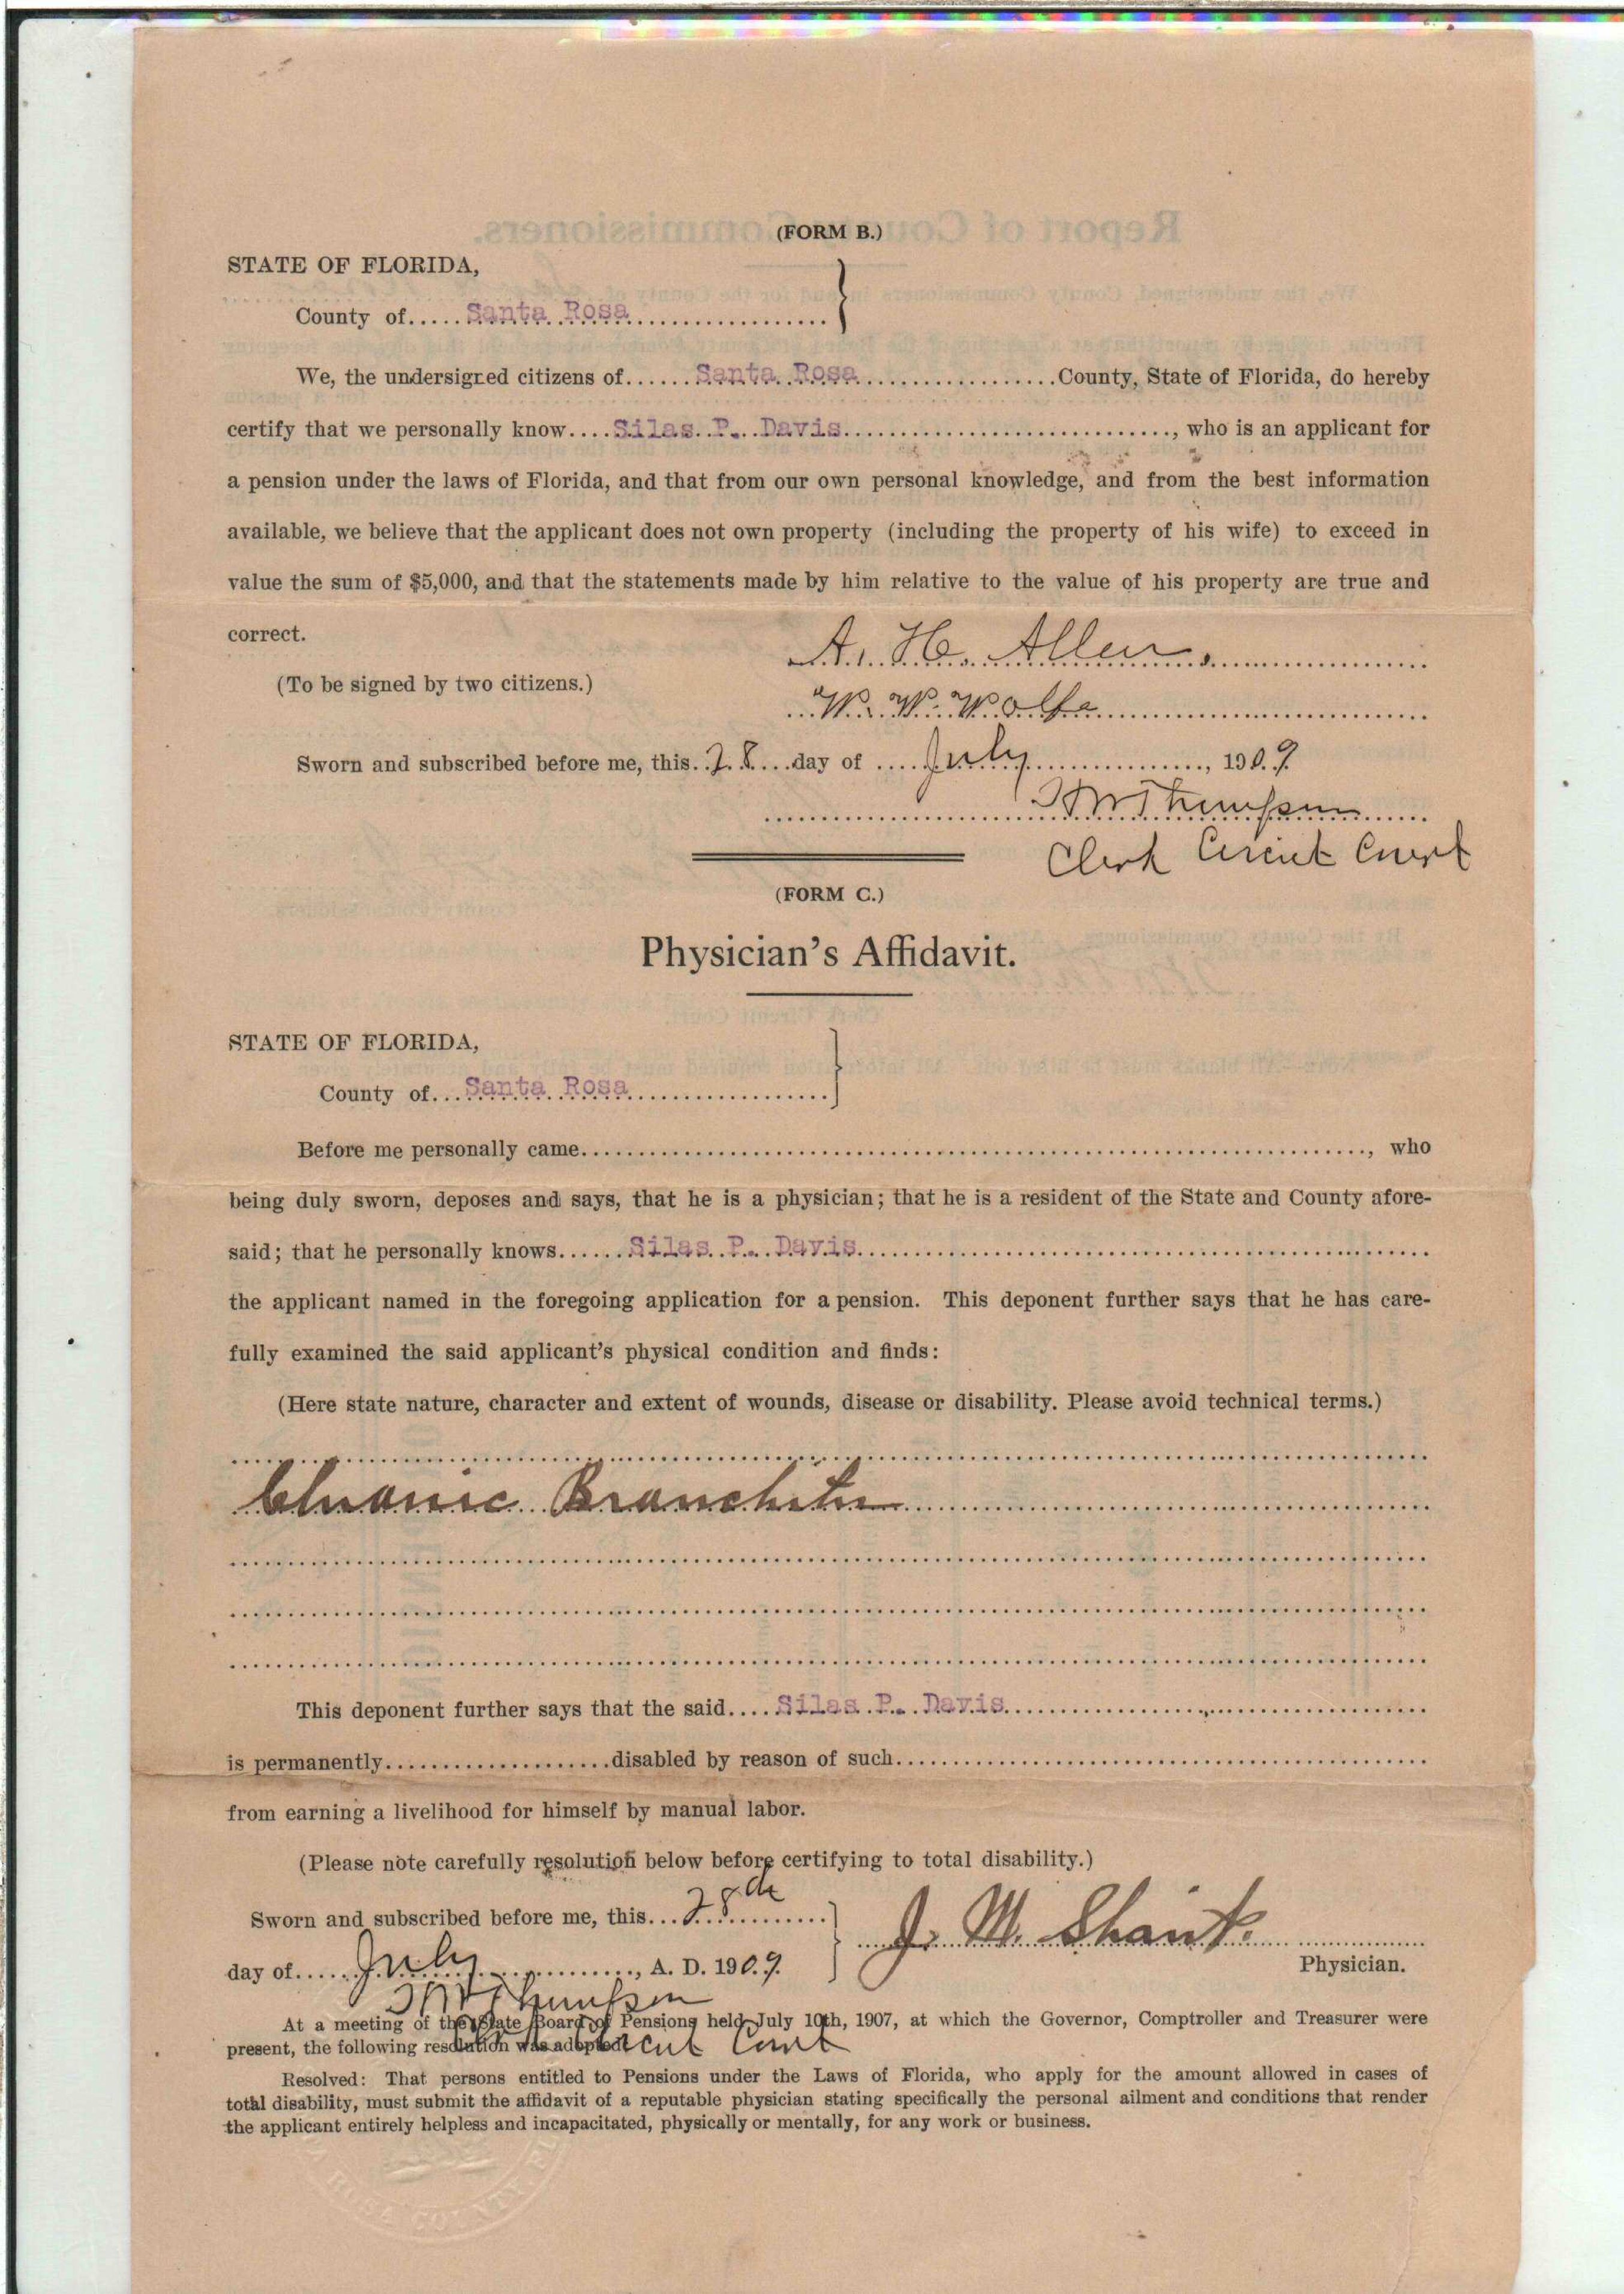 (FORM B.)
STATE OF FLORIDA,
County of Santa Rosa
We, the undersigned citizens of Santa Rosa County, State of Florida, do hereby
certify that we personally know Silas P. Davis, who is an applicant for
a pension under the laws of Florida, and that from our own personal knowledge, and from the best information
available, we believe that the applicant does not own property (including the property of his wife) to exceed in
value the sum of $5,000, and that the statements made by him relative to the value of his property are true and
correct.
A. H. Allen
(To be signed by two citizens.)
W. W. Wolfe
Sworn and subscribed before me, this 28 day of July, 1909
Thompson
Clerk Circuit Court
(FORM C.)
Physician's Affidavit.
STATE OF FLORIDA,
County of Santa Rosa
Before me personally came, who
being duly sworn, deposes and says, that he is a physician; that he is a resident of the State and County afore-
said; that he personally knows Silas P. Davis
the applicant named in the foregoing application for a pension. This deponent further says that he has care-
fully examined the said applicant's physical condition and finds:
(Here state nature, character and extent of wounds, disease or disability. Please avoid technical terms.)
Chronic Branchitis
This deponent further says that the said Silas P. Davis
is permanently disabled by reason of such
from earning a livelihood for himself by manual labor.
(Please note carefully resolution below before certifying to total disability.)
Sworn and subscribed before me, this 28th
J. M. Shank
day of July, A. D. 1909.
Physician.
Thompson
Circuit Court
At a meeting of the State Board of Pensions held July 10th, 1907, at which the Governor, Comptroller and Treasurer were
present, the following resolution was adopted:
Resolved: That persons entitled to Pensions under the Laws of Florida, who apply for the amount allowed in cases of
total disability, must submit the affidavit of a reputable physician stating specifically the personal ailment and conditions that render
the applicant entirely helpless and incapacitated, physically or mentally, for any work or business.
ROSA COUNTY